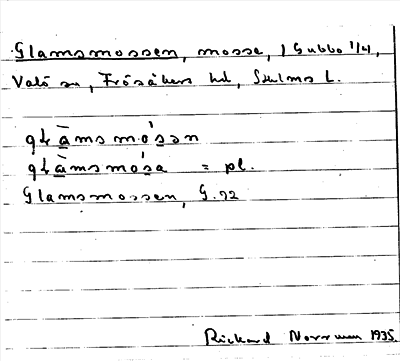 Glamsmossen, mosse, 1 Gubbo 1/4,
Valö sn, Frösåkers hd, Sthlms L.
gɫā̀msmósən
gɫā̀msmósa = pl.
Glamsmossen, G. 72
Rickard Norrman 1935.